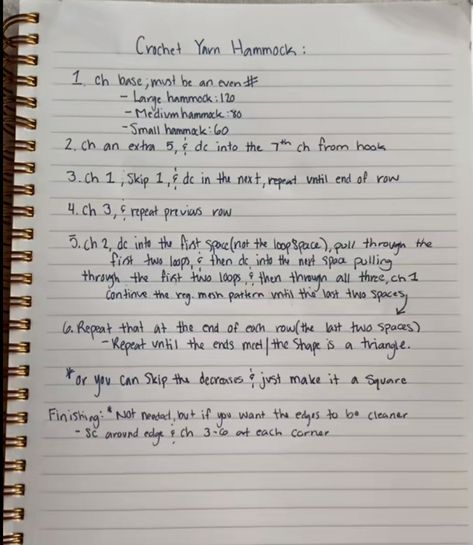 Crochet Yarn Hammock:
1. ch base; must be an even #
- Large hammock: 120
- Medium hammock: 80
- Small hammock: 60
2. Ch an extra 5, & dc into the 7th ch from hook
3. Ch 1, Skip 1, & dc in the next, repeat until end of row
4. Ch 3, & repeat previous row
5. Ch 2, dc into the first space (not the loop space), pull through the
first two loops, & then dc into the next space pulling
through the first two loops, & then through all three, ch 1
Continue the reg. mesh pattern until the last two spaces
6. Repeat that at the end of each row (the last two spaces)
- Repeat until the ends meet/the shape is a triangle.
*or you can Skip the decreases & just make it a Square
Finishing: * Not needed, but if you want the edges to be cleaner
- SC around edge & Ch 3-6 at each corner